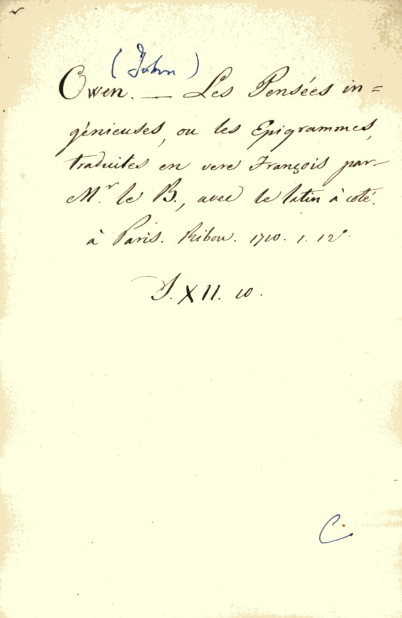 (John)
Owen. — Les Pensées in=
génieuses, ou les Epigrammes,
traduites en vers François par
Mr. le B., avec le latin à coté.
à Paris. Ribou. 1710. 1. 12°
S. XII. 10.
C.